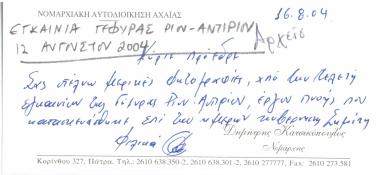 ΝΟΜΑΡΧΙΑΚΗ ΑΥΤΟΔΙΟΙΚΗΣΗ ΑΧΑΪΑΣ
16.8.04
ΕΓΚΑΙΝΙΑ ΓΕΦΥΡΑΣ ΡΙΟΝ-ΑΝΤΙΡΙΟΝ
12 ΑΥΓΟΥΣΤΟΥ 2004
Αρχείο
Κύριε Πρόεδρε
Σας στέλνω μερικές φωτογραφίες, από την τελετή
εγκαινίων της Γέφυρας Ρίου-Αντιρίου, έργου πνοής που
κατασκευάσθηκε επί των ημερών κυβέρνησης Σημίτη
Φιλικά
Δημήτρης Κατσικόπουλος
Νομάρχης
Κορίνθου 327, Πάτρα. Τηλ.: 2610 638.350-2, 638.301-2, 2610 277777, Fax: 2610 273.581